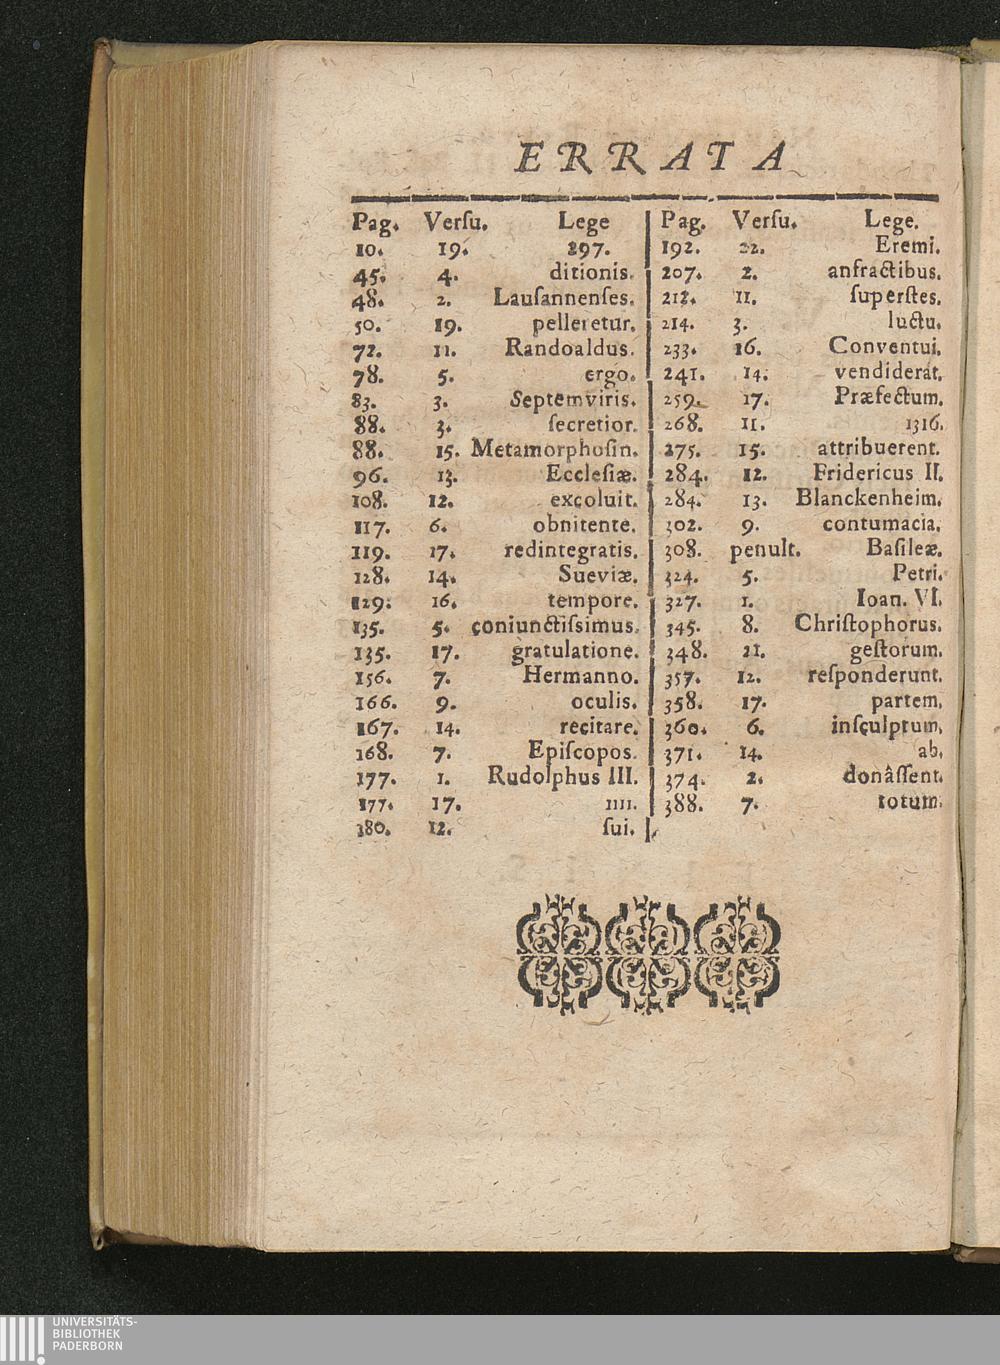 ERRATA
Pag. Versu. Lege
10. 19. 897.
45. 4. ditionis.
48. 2. Lauſannenſes.
50. 19. pelleretur.
72. 11. Randoaldus.
78. 5. ergo.
83. 3. Septemviris.
88. 3. ſecretior.
88. 15. Metamorphoſin.
96. 13. Eccleſiæ.
108. 12. excoluit.
117. 6. obnitente.
119. 17. redintegratis.
128. 14. Sueviæ.
129. 16. tempore.
135. 5. coniunctiſsimus.
135. 17. gratulatione.
156. 7. Hermanno.
166. 9. oculis.
167. 14. recitare.
168. 7. Epiſcopos.
177. 1. Rudolphus III.
177. 17. IIII.
380. 12. ſui.
Pag. Verſu. Lege.
192. 22. Eremi.
207. 2. anfractibus.
212. 11. ſuperſtes.
214. 3. luctu.
233. 16. Conventui.
241. 14. vendiderat.
259. 17. Præfectum.
268. 11. 1316.
275. 15. attribuerent.
284. 12. Fridericus II.
284. 13. Blanckenheim.
302. 9. contumacia.
308. penult. Baſileæ.
324. 5. Petri.
327. 1. Ioan. VI.
345. 8. Chriſtophorus.
348. 21. geſtorum.
357. 12. reſponderunt.
358. 17. partem.
360. 6. inſculptum.
371. 14. ab.
374. 2. donâſſent.
388. 7. totum.
UNIVERSITÄTS-
BIBLIOTHEK
PADERBORN